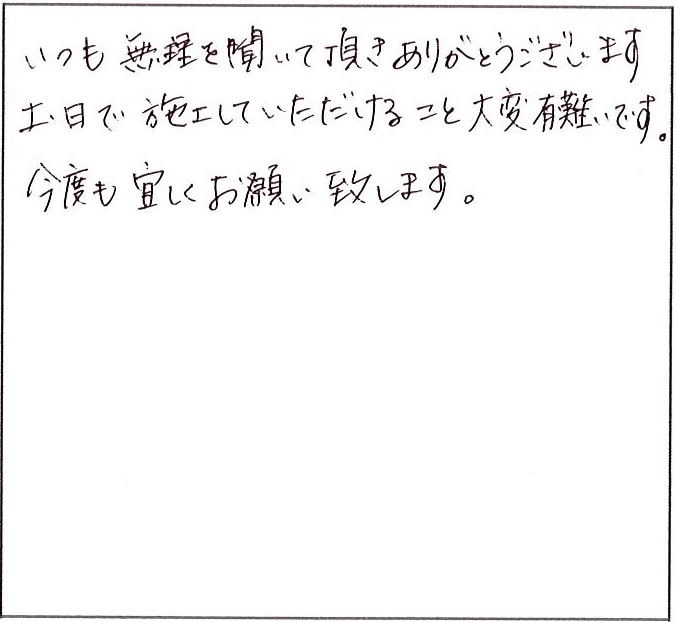 いつも無理を聞いて頂きありがとうございます
土・日で施工していただけること大変有難いです。
今度も宜しくお願い致します。